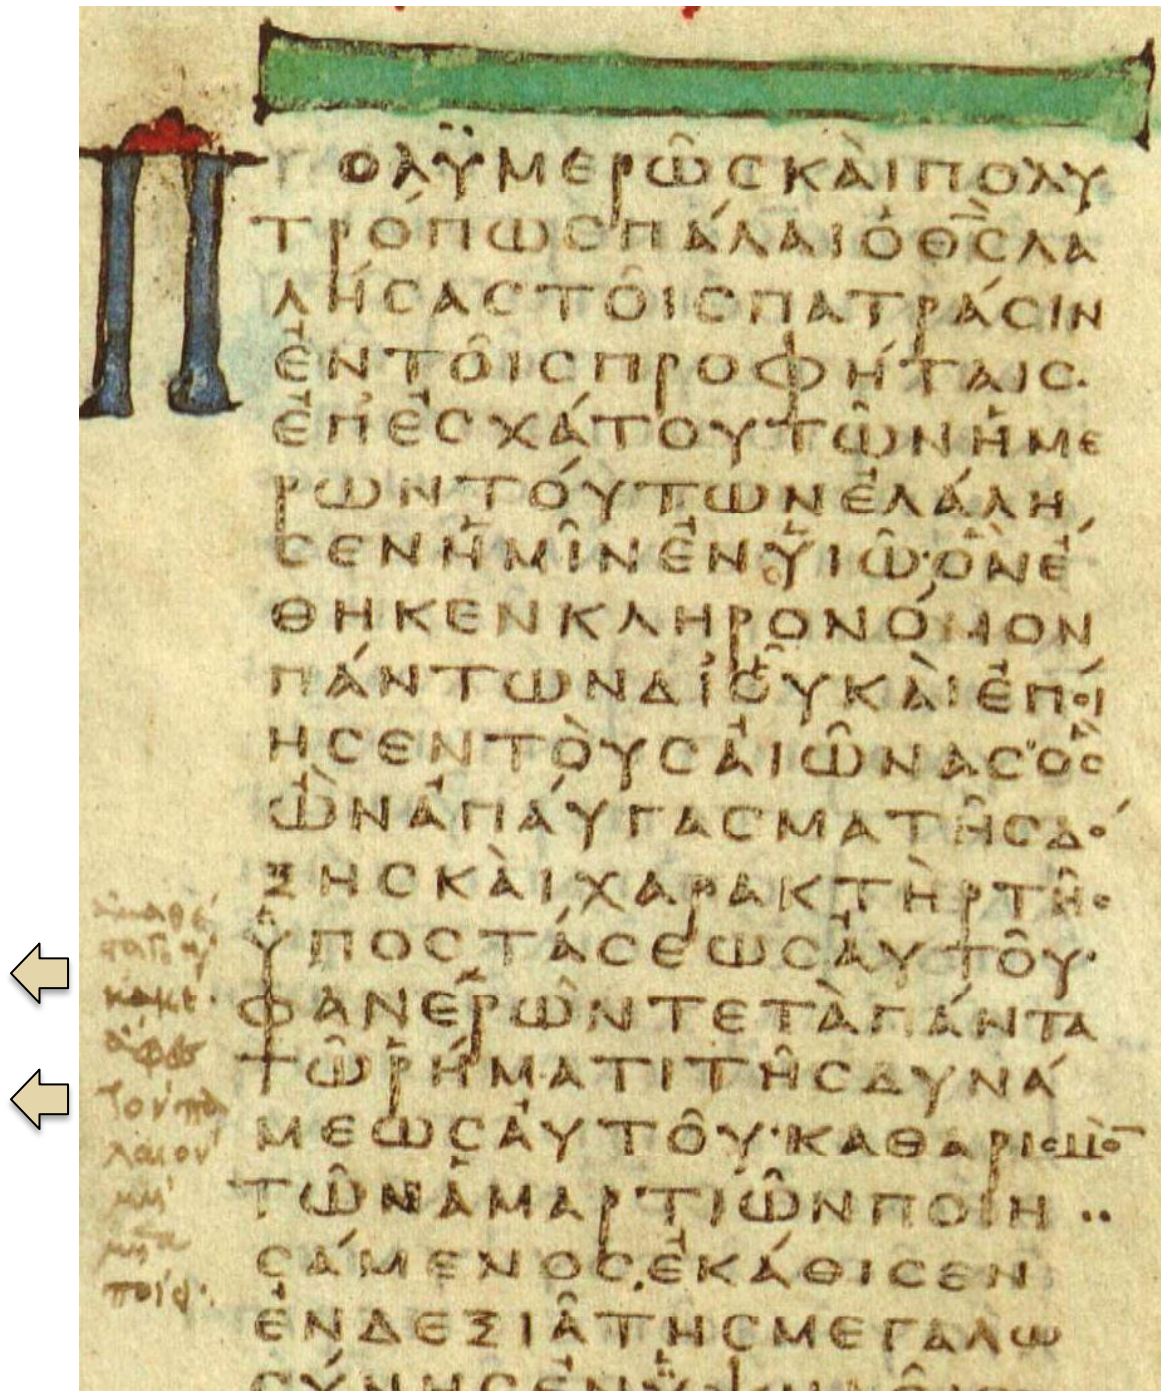 ΠΟΛΥΜΕΡΩϹΚΑΙΠΟΛΥ
ΤΡΟΠΩϹΠΑΛΑΙΟΘ̅Ϲ̅ΛΑ
ΛΗϹΑϹΤΟΙϹΠΑΤΡΑϹΙΝ
ΕΝΤΟΙϹΠΡΟΦΗΤΑΙϹ·
ΕΠΕϹΧΑΤΟΥΤΩΝΗΜΕ
ΡΩΝΤΟΥΤΩΝΕΛΑΛΗ
ϹΕΝΗΜΙΝΕΝΥΙΩ·ΟΝΕ
ΘΗΚΕΝΚΛΗΡΟΝΟΜΟΝ
ΠΑΝΤΩΝΔΙΟΥΚΑΙΕΠΟΙ
ΗϹΕΝΤΟΥϹΑΙΩΝΑϹΟϹ
ΩΝΑΠΑΥΓΑϹΜΑΤΗϹΔΟ
ΞΗϹΚΑΙΧΑΡΑΚΤΗΡΤΗϹ
ΥΠΟϹΤΑϹΕΩϹΑΥΤΟΥ·
ΦΑΝΕΡΩΝΤΕΤΑΠΑΝΤΑ
ΤΩΡΗΜΑΤΙΤΗϹΔΥΝΑ
ΜΕΩϹΑΥΤΟΥ·ΚΑΘΑΡΙϹΜΟ̅
ΤΩΝΑΜΑΡΤΙΩΝΠΟΙΗ
ϹΑΜΕΝΟϹΕΚΑΘΙϹΕΝ
ΕΝΔΕΞΙΑΤΗϹΜΕΓΑΛΩ
ϹΥΝΗϹΕΝΥΨΗΛΟΙϹ
ἀμαθέ
στατε κ
κακέ·
ἄφες
τὸν πα
λαιὸν
μὴ
μετα
ποίει·